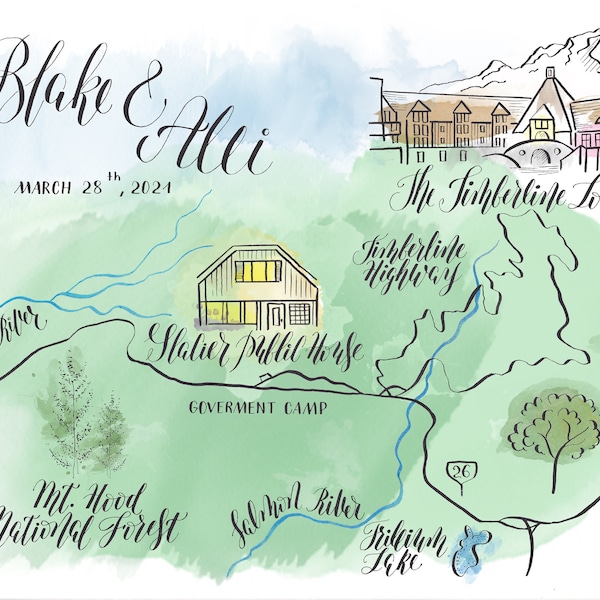 Blake &
Alli
MARCH 28th, 2021
The Timberline Lo
Timberline
Highway
River
Glacier Public House
GOVERMENT CAMP
26
Mt. Hood
National Forest
Salmon River
Trillium
Lake